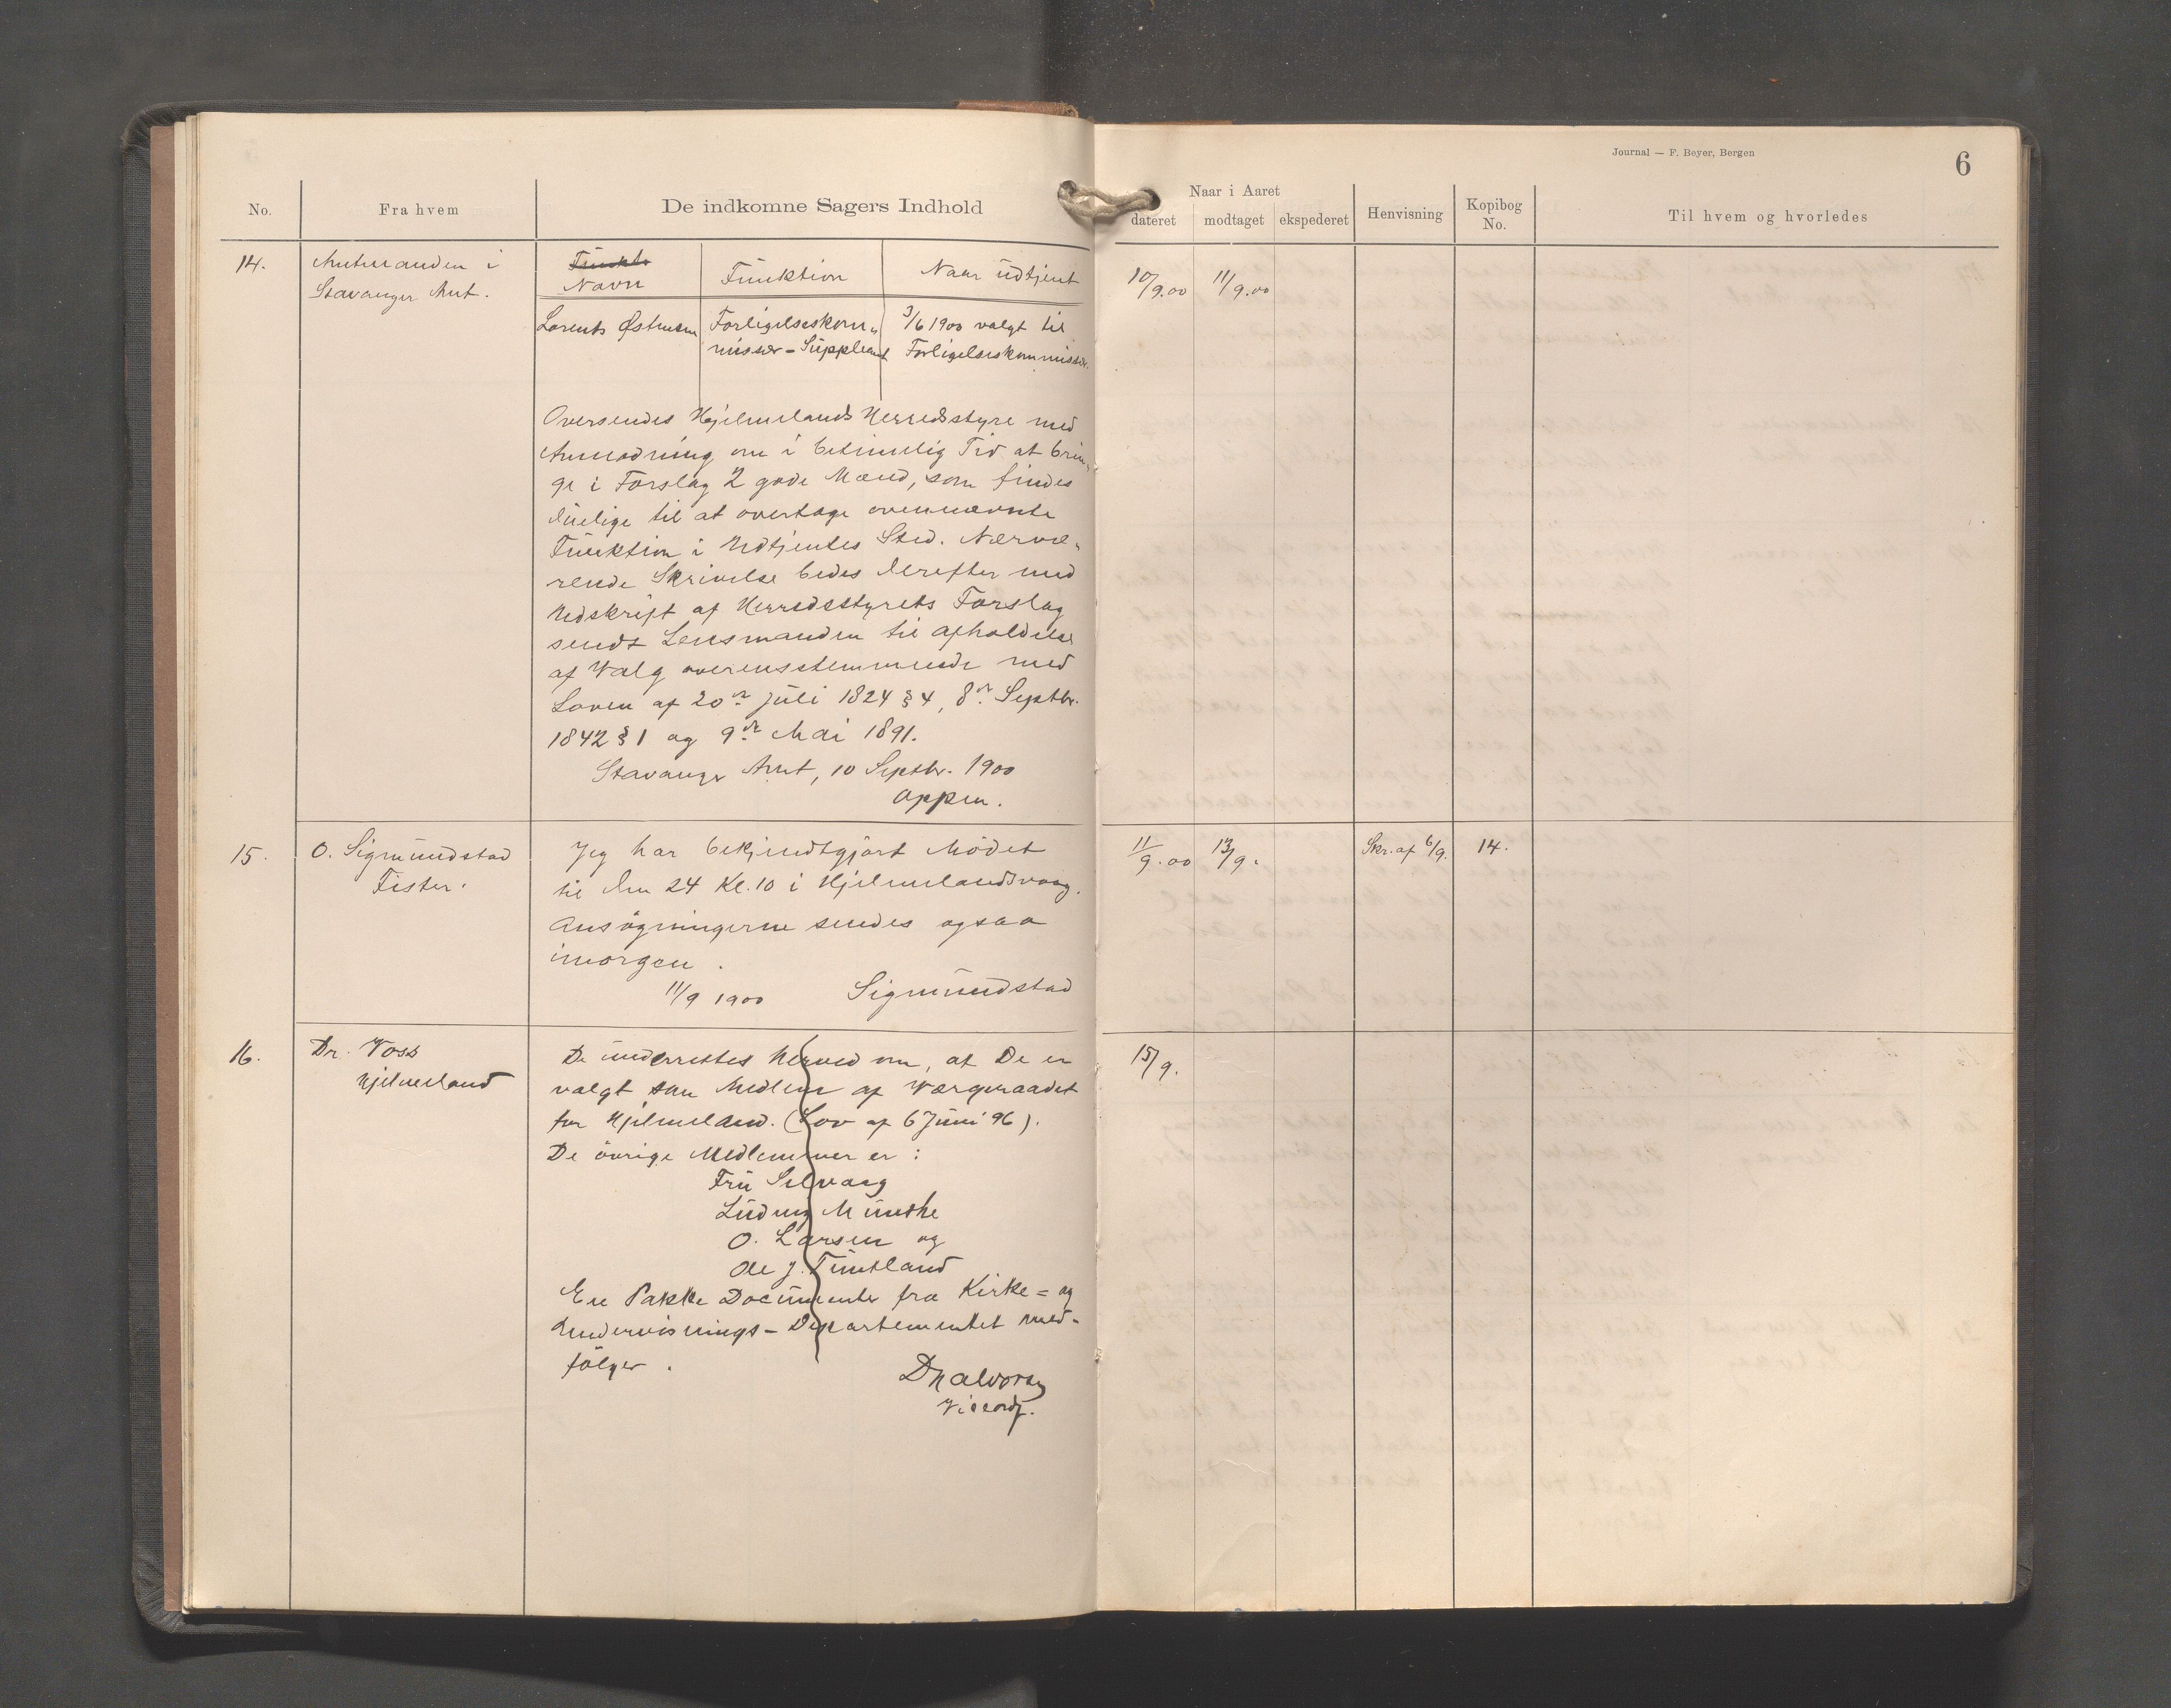 Journal — F. Beyer, Bergen
6
No.
Fra hvem
De indkomne Sagers Indhold
Naar i Aaret
dateret
modtaget
ekspederet
Henvisning
Kopibog No.
Til hvem og hvorledes
14.
Amtmanden i
Stavanger Amt.
Funkt
Navn
Funktion
Naar udtjent
Lorents Østmann
Forligelseskom-
missær-Suppleant
3/6 1900 valgt til
Forligelseskommissær.
10/9.00
11/9.00
Oversendes Hjelmelands Herredsstyre med
Anmodning om i betimelig Tid at brin-
ge i Forslag 2 gode Mænd, som findes
duelige til at overtage ovennævnte
Funktion i Udtjentes Sted. Nærvæ-
rende Skrivelse bedes derefter med
Udskrift af Herredsstyrets Forslag
sendt Lensmanden til afholdelse
af Valg overensstemmende med
Loven af 20de Juli 1824 § 4, 8de Septbr.
1842 § 1 og 9de Mai 1891.
Stavanger Amt, 10 Septbr. 1900
Oppen.
15.
O. Sigmundstad
Fister.
Jeg har bekjendtgjort Mödet
til den 24 Kl. 10 i Hjelmelandsvaag.
Ansögningerne sendes ogsaa
imorgen.
11/9 1900 Sigmundstad
11/9.00
13/9.
Skr. af 6/9.
14.
16.
Dr. Voss
Hjelmeland
De underrettes herved om, at De er
valgt som Medlem af Værgeraadet
for Hjelmeland. (Lov af 6 Juni 96).
De övrige Medlemmer er:
Fru Selvaag
Ludvig Munthe
O. Larsen og
Ole J. Tuntland
En Pakke Documenter fra Kirke= og
Undervisnings-Departementet med-
fölger.
Viceordf.
15/9.